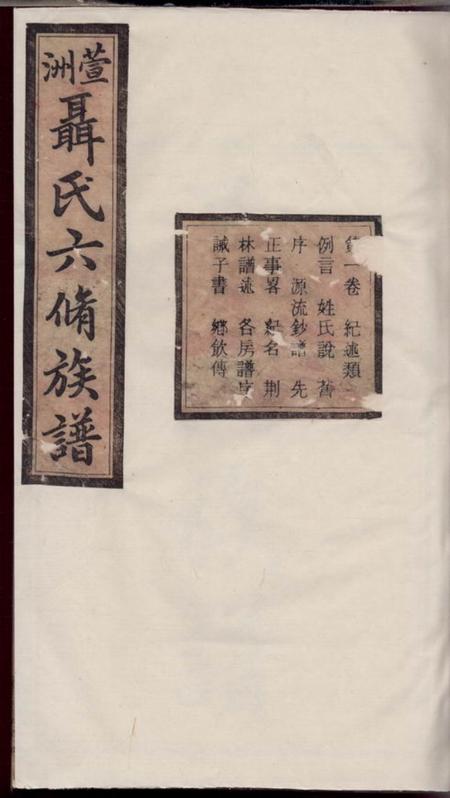 萱洲
聶氏六脩族譜
一卷 紀述類
例言 姓氏說 舊
序 源流鈔譜 先
正事畧 紀名 荆
林譜述 各房譜序
誡子書 鄉飲傳